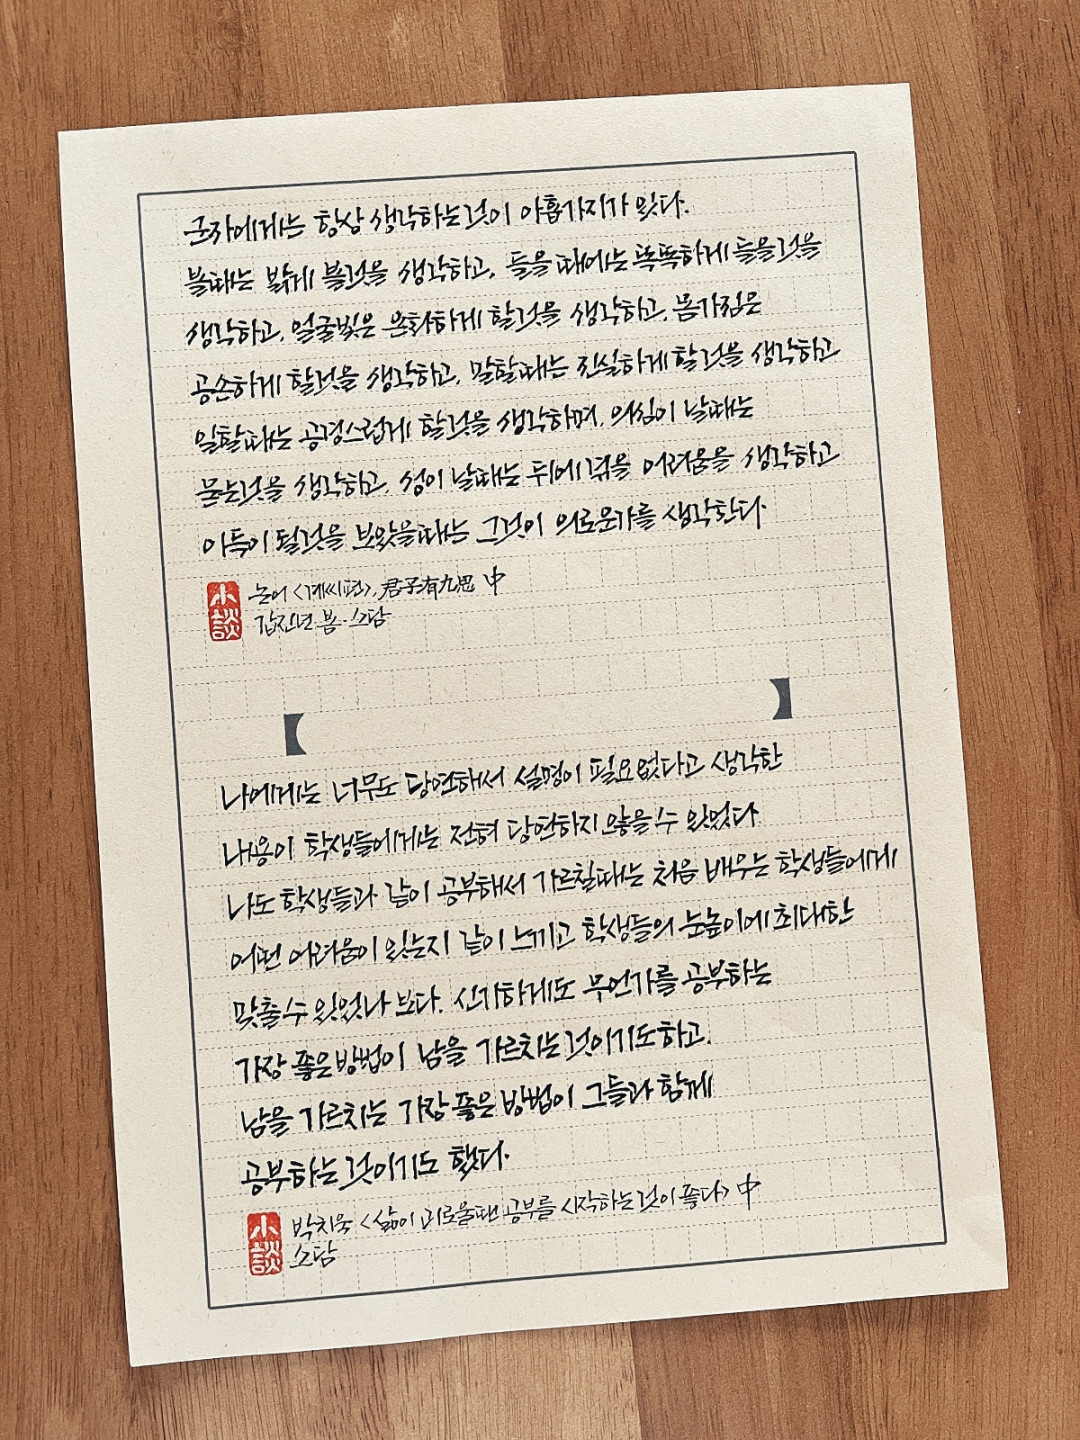 군자에게는 항상 생각하는것이 아홉가지가 있다.
볼때는 밝게 볼것을 생각하고, 들을때에는 똑똑하게 들을것을
생각하고, 얼굴빛은 온화하게 할것을 생각하고, 몸가짐은
공손하게 할것을 생각하고, 말할때는 진실하게 할것을 생각하고
일할때는 공경스럽게 할것을 생각하며, 의심이 날때는
묻는것을 생각하고, 성이 날때는 뒤에 겪을 어려움을 생각하고
이득이 될것을 보았을때는 그것이 의로운가를 생각한다.
小談
논어 <계씨편>, 君子有九思 中
갑진년 봄. 소담
나에게는 너무도 당연해서 설명이 필요없다고 생각한
내용이 학생들에게는 전혀 당연하지 않을 수 있었다.
나도 학생들과 같이 공부해서 가르칠때는 처음 배우는 학생들에게
어떤 어려움이 있는지 같이 느끼고 학생들의 눈높이에 최대한
맞출수 있었나 보다. 신기하게도 무언가를 공부하는
가장 좋은방법이 남을 가르치는것이기도하고,
남을 가르치는 가장 좋은 방법이 그들과 함께
공부하는 것이기도 했다.
小談
박치욱 <삶이 괴로울땐 공부를 시작하는것이 좋다> 中
소담